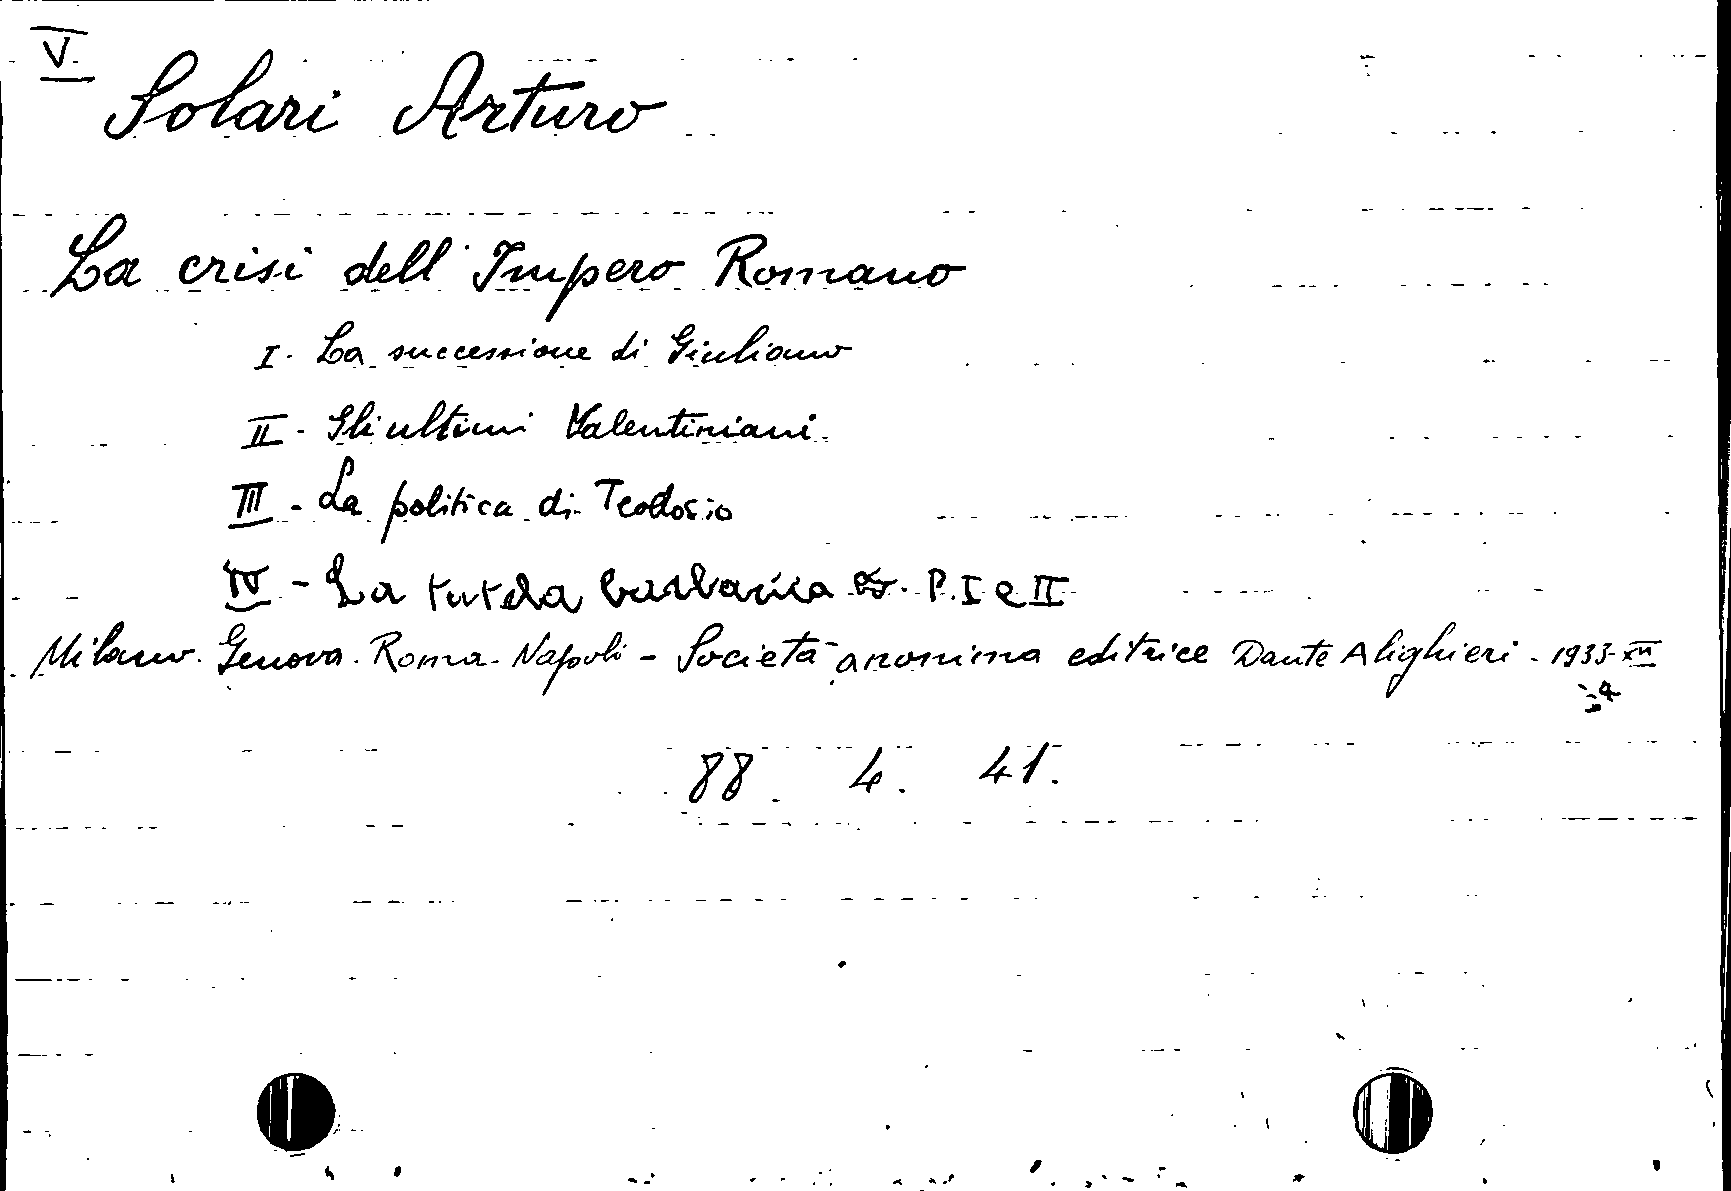 V.
Solari Arturo
La crisi dell'Impero Romano
I. La successione di Giuliano
II - Gli ultimi Valentiniani.
III - La politica di Teodosio
IV - La tutela barbarica P. I e II
Milano. Genova. Roma. Napoli - Società anonima editrice Dante Alighieri. 1933-XII
88. 4. 41.